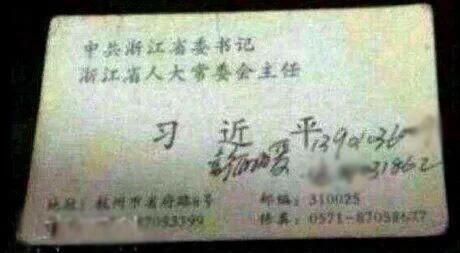 中共浙江省委书记
浙江省人大常委会主任
习近平
1390136
31862
地址：杭州市省府路8号 邮编：310025
87053399 传真：0571-870586